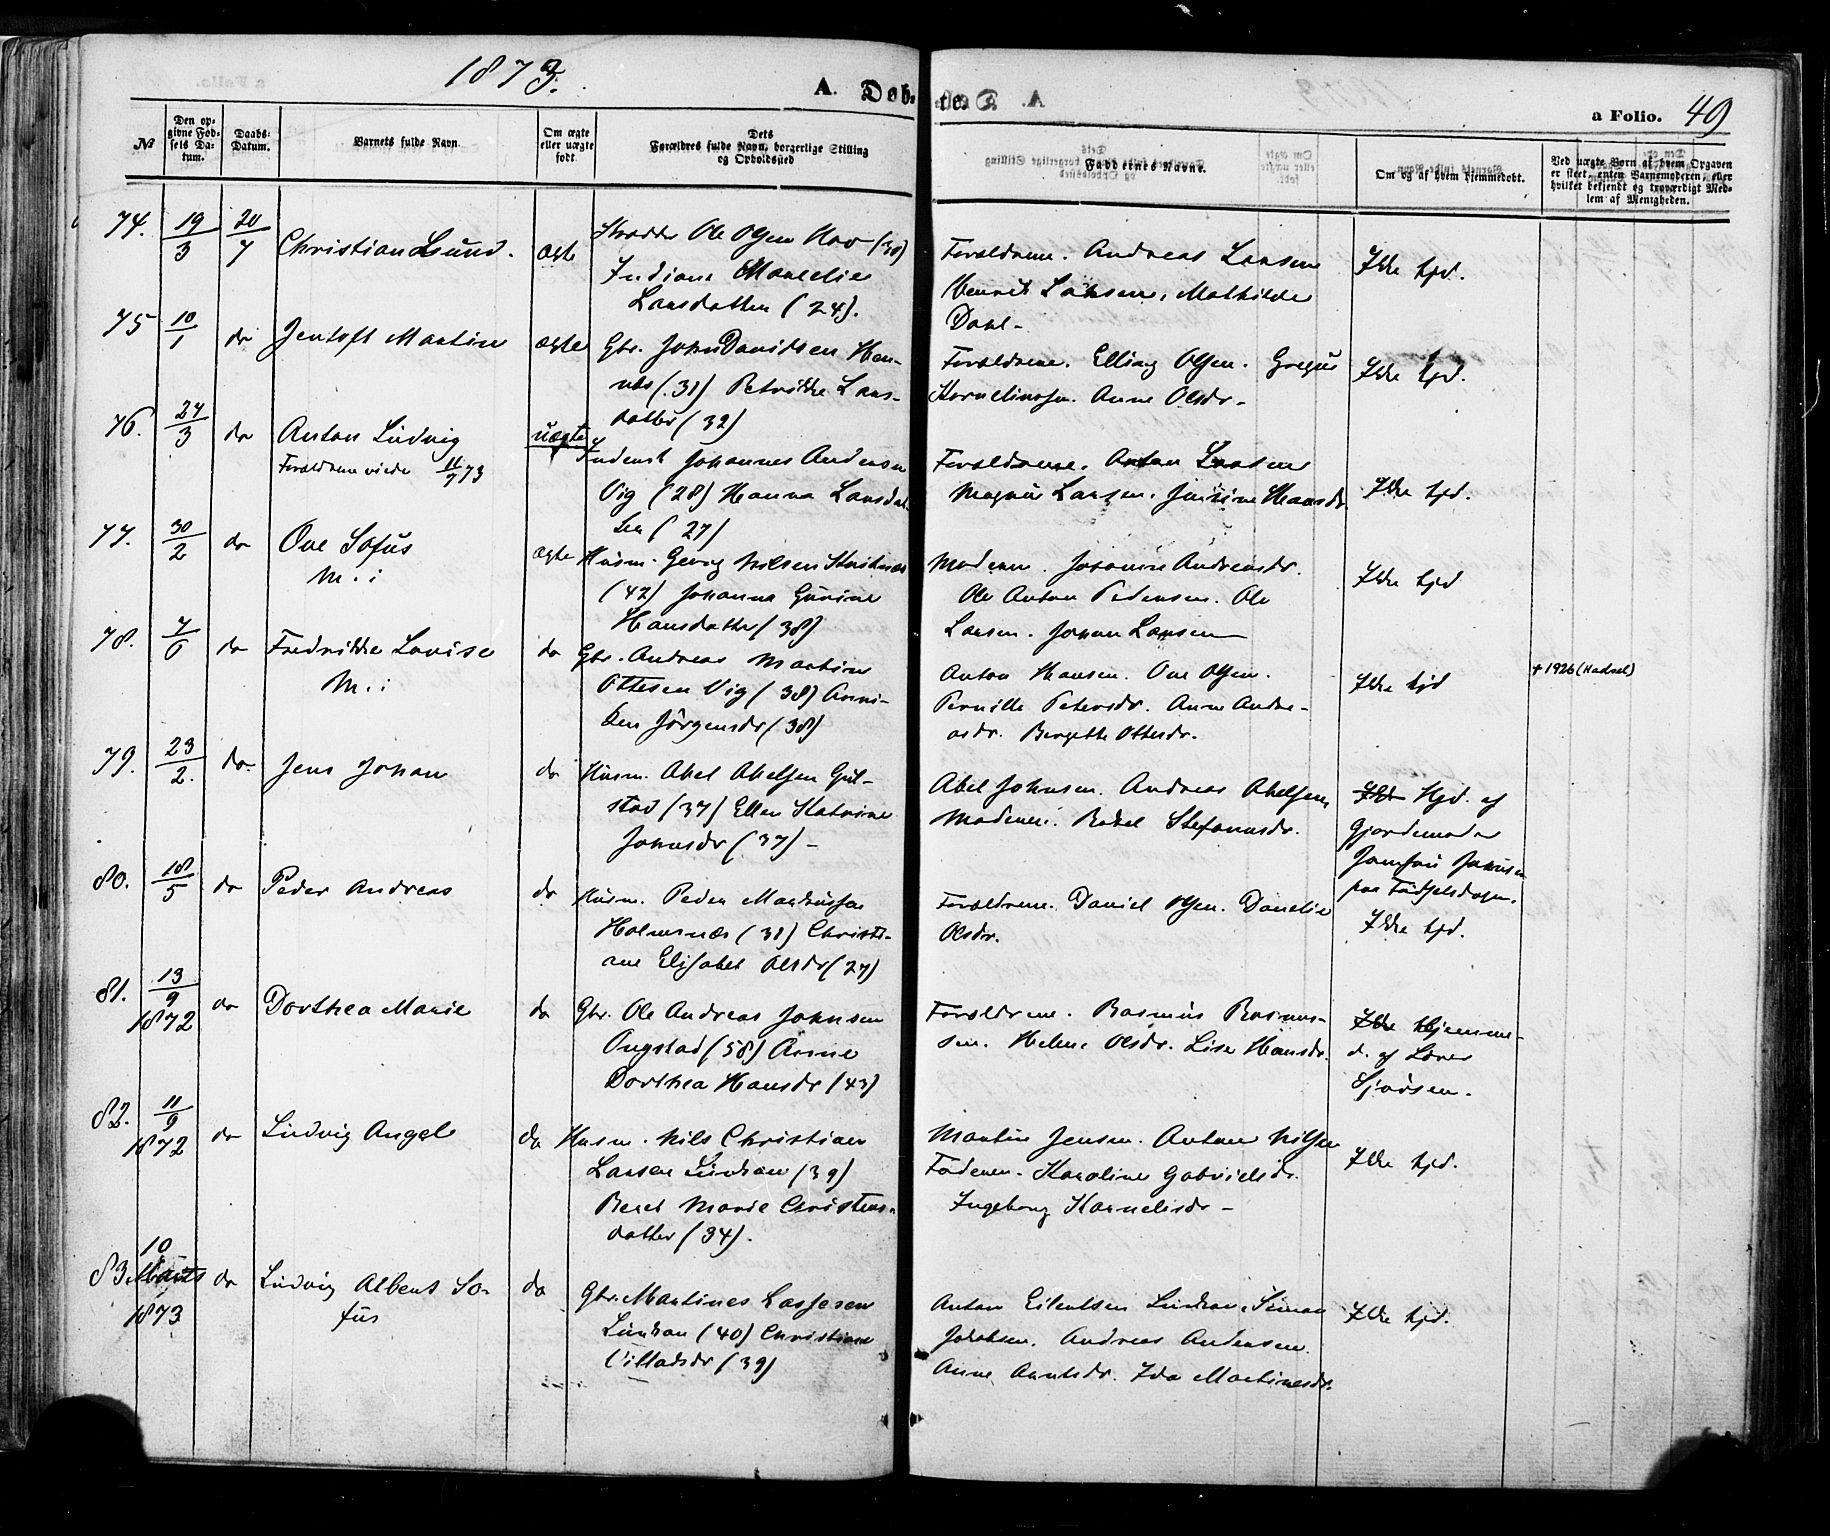 1873.
A. Døbte.
a Folio. 49
№
Den opgivne Fødsels Datum.
Daabs-Datum.
Varnets fulde Navn
Om ægte eller uægte født.
Dets Forældres fulde Navn, borgerlige Stilling og Opholdssted
Faddernes Navne.
Om og af hvem hjemmedøbt.
Ved uægte Børn af hvem Opgaven er skeet, enten Barnemoderen, eller hvilket bekjendt og troværdigt Medlem af Menigheden.
74. 19/3 20/7 Christian Lund. ægte
Ole Olsen Hov (30)
Indiane Marcelie
Larsdatter (24).
Forældrene. Andreas Larsen
Henrik Larsen, Mathilde
Dahl -
Ikke hjd.
75 10/1 do Jentoft Martin ægte
Gbr. John Davidsen Hen-
nes (31) Petrikke Lars-
datter (32)
Forældrene. Elling Olsen. Gregus
Kornelius. Anne Olsdr -
Ikke hjd.
76. 27/3 do Anton Ludvig uægte
Forældrene viede 11/7 73
Inderst Johannes Andersen
Vig (28) Hanna Larsdat-
ter (27)
Forældrene. Anton Larsen
Magnus Larsen. Justine Hansdr
Ikke hjd.
77. 30/2 do Ove Sofus ægte
M. i
Husm. Georg Nilsen
(42) Johanna Gurine
Hansdatter (38)
Moderen. Johanna Andreasdr.
Ole Anton Pedersen. Ole
Larsen. Johan Larsen
Ikke hjd
78. 7/6 do Fredrikke Lovise do
M. i
Gbr. Andreas Martin
Ottesen Vig (38) Anni-
ken Jørgensdr (38)
Anton Hansen. Ove Olsen.
Pernille Petersdr. Anne Andre-
asdr. Bergitte Ottesdr.
Ikke hjd
† 1926 (Hadsel)
79. 23/2. do. Jens Johan do
Husm. Abel Abelsen Gul-
stad (37) Ellen Katrine
Johnsdr (37) -
Abel Johnsen. Andreas Abelsen,
Moderen. Rakel Stefansdr.
Ikke Hjd. af
Gjordemoder
paa Fødselsdagen.
80. 18/5 do Peder Andreas do
Husm. Peder Markussen
Holmsnæs (31) Christi-
ane Elisabet Olsdr (27)
Forældrene. Daniel Olsen. Danelie
Olsdr.
Ikke hjd.
81. 13/9 1872 do Dorthea Marie do
Gbr. Ole Andreas Johnsen
Ongstad (58) Anne
Dorthea Hansdr (43)
Forældrene. Rasmus Rasmus-
sen. Helene Olsdr. Lise Hansdr.
Ikke Hjemme-
d. af Lærer
82. 11/9 1872 do Ludvig Angel do
Husm. Nils Christian
Larsen Lunkan (39)
Beret Marie Christens-
datter (34).
Martin Jensen. Anton Nilsen
Faderen. Karoline Gabrielsdr.
Ingeborg Kornelisdr -
Ikke hjd.
83. 10 Marts 1873 do Ludvig Albert So-
fus do
Gbr. Martines Lassesen
Lunkan (40) Christiane
Villadsdr (39)
Anton Eilertsen Lunkan, Simon
Jakobsen. Andreas Andersen.
Anne Arntsdr. Ida Martinesdr.
Ikke hjd.